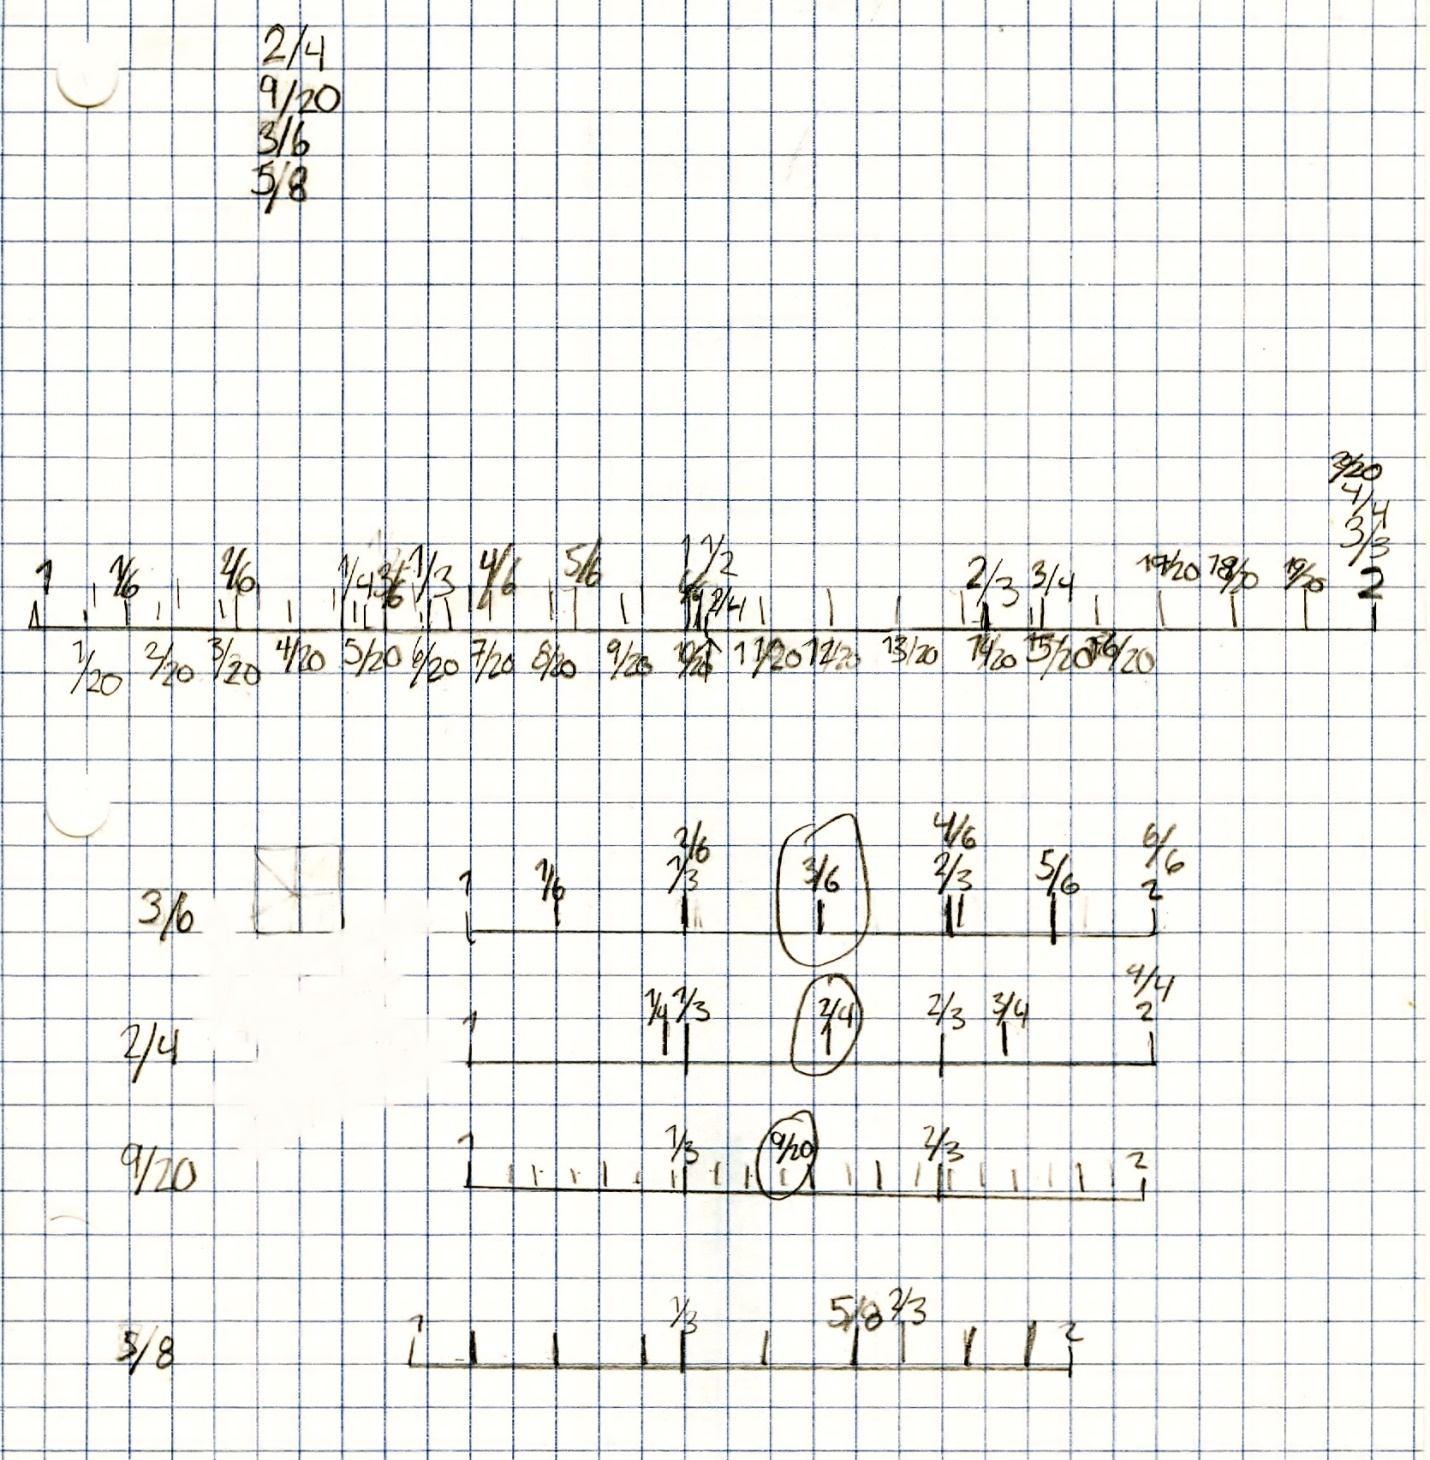 2/4
9/20
3/6
5/8
20/20
4/4
3/3
1 1/6 2/6 1/4 3/6 1/3 4/6 5/6 1/2 2/4 2/3 3/4 17/20 18/20 19/20 2
1/20 2/20 3/20 4/20 5/20 6/20 7/20 8/20 9/20 10/20 11/20 12/20 13/20 14/20 15/20 16/20
2/6 4/6 6/6
3/6 1 1/6 1/3 3/6 2/3 5/6 2
4/4
2/4 1 1/4 1/3 2/4 2/3 3/4 2
9/20 1 1/3 9/20 2/3 2
5/8 1 1/3 5/8 2/3 2